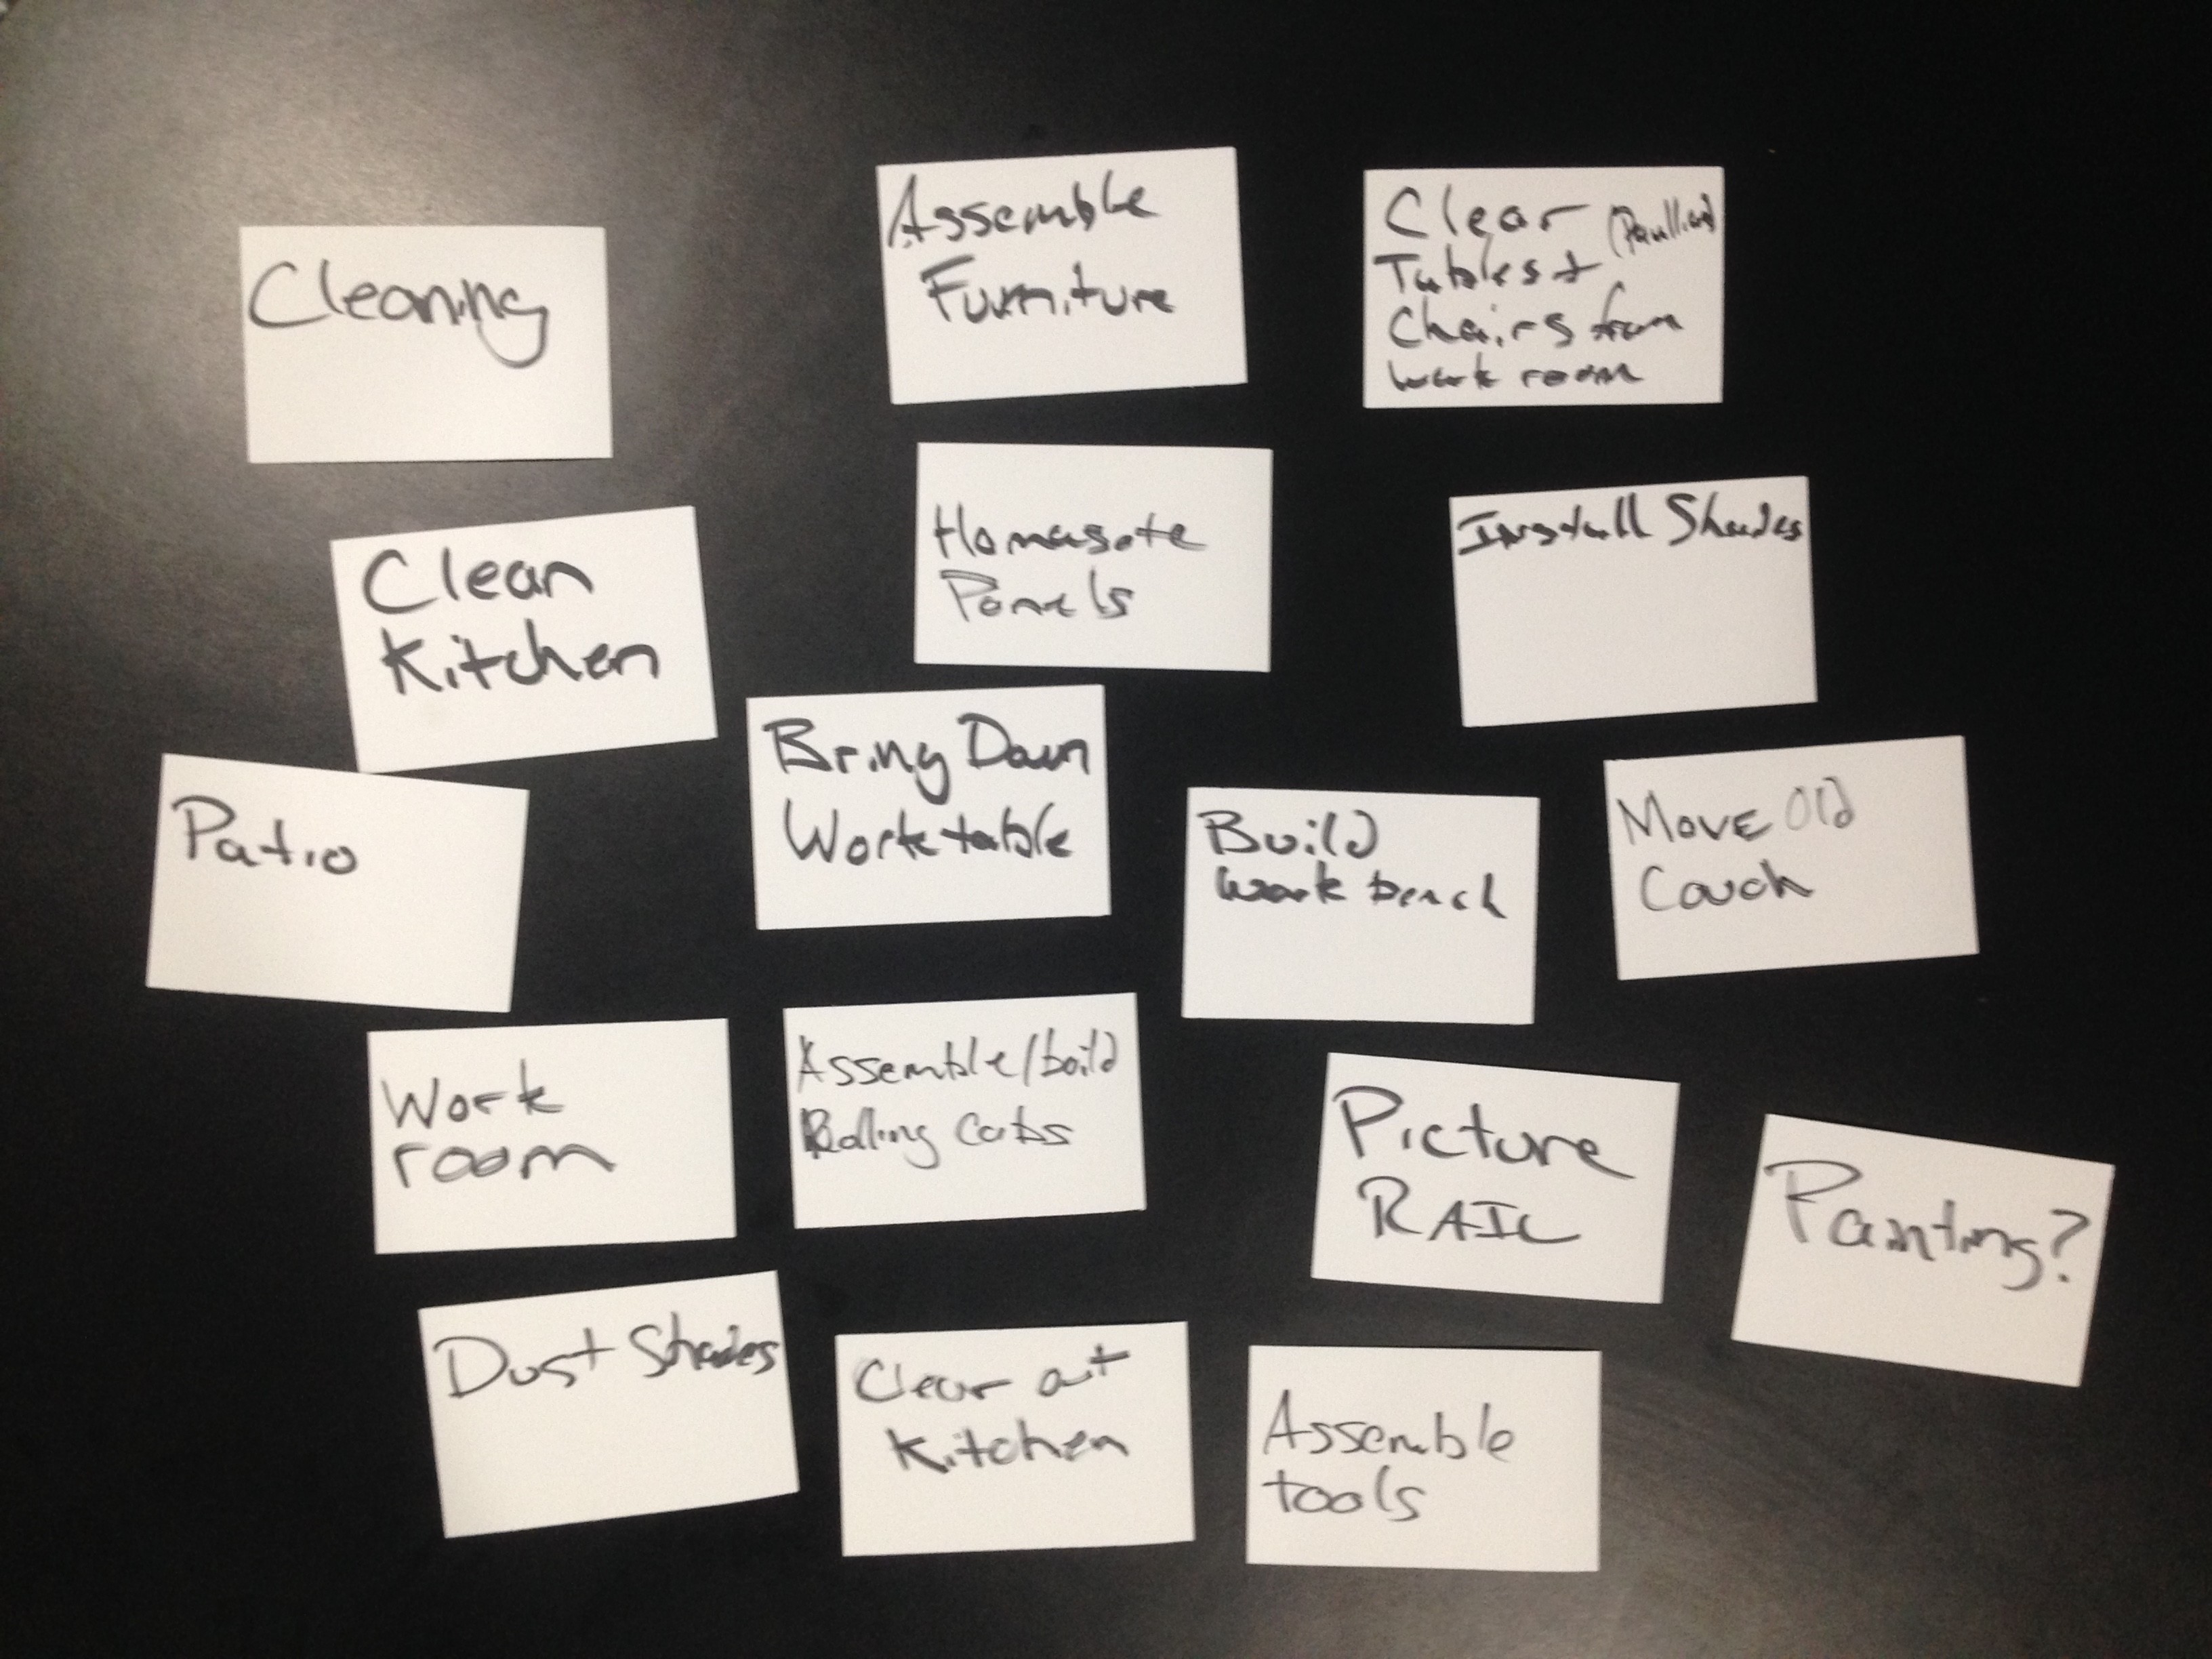 Cleaning
Assemble
Furniture
Clear
Tables +
Chairs from
work room
Clean
Kitchen
Homasote
Panels
Install Shades
Patio
Bring Down
Worktable
Build
work bench
Move Old
Couch
Work
room
Assemble/build
Rolling Carts
Picture
RAIL
Painting?
Dust Shades
Clear out
Kitchen
Assemble
tools